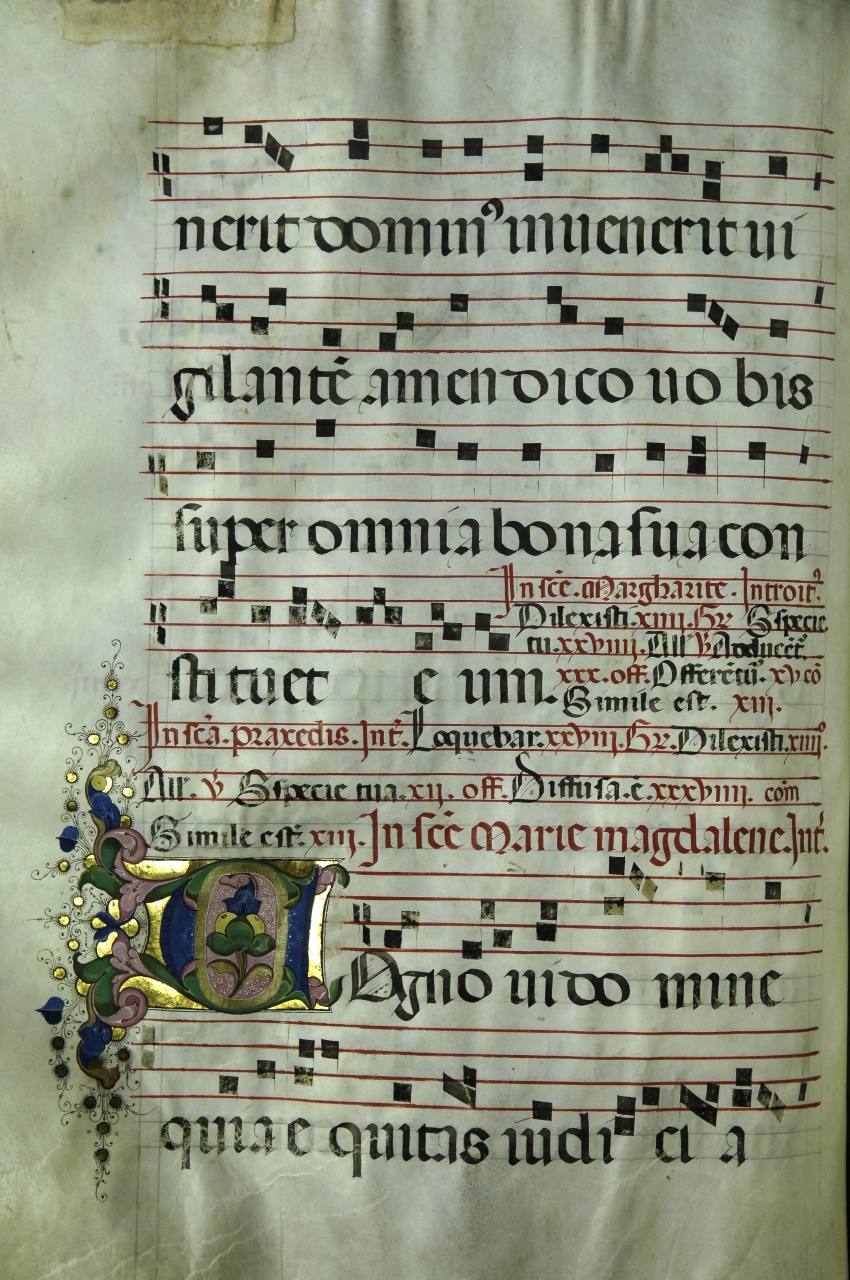 nerit domin⁹ inuenerit ui
gilantē amen dico uo bis
super omnia bona sua con
In scē. Margharite. Introit⁹.
Dilexisti. xiiii. Gr. Specie
tu. xxviiii. All'. v̄. Adducēt̄.
stituet e um.
xxx. off. Offerētū. xv cō
Simile est. xiii.
In scā. praxedis. Int̄. Loquebar. xxviii. Gr. Dilexisti. xiiii⁰.
All'. v̄ Specie tua. xii. off. Diffusa. ē. xxxviiii. com̄
Simile est. xiii. In scē Marie magdalene. Int̄.
Cogno ui do mine
quia e quitas iudi ci a